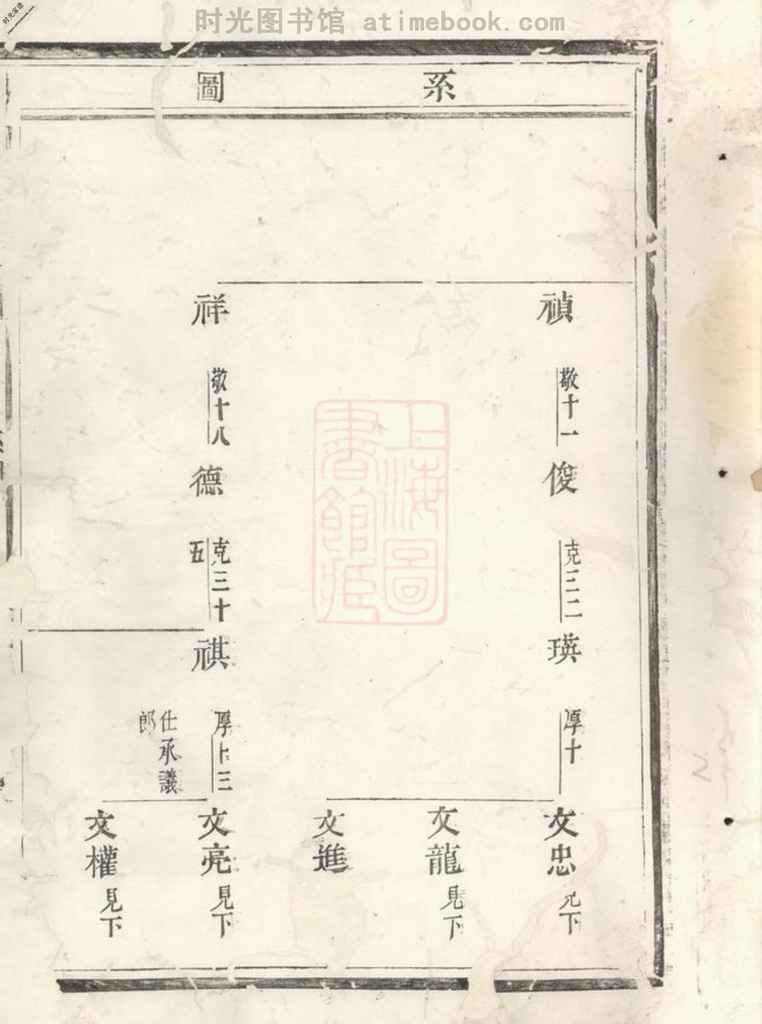 时光图书馆 atimebook.com
时光家谱
系圖
禎
敬十一
俊
克三二
瑛
厚十
文忠
見下
文龍
見下
文進
祥
敬十八
德
克三十
五
祺
厚十三
仕承議
郎
文亮
見下
文權
見下
上海圖
書館藏